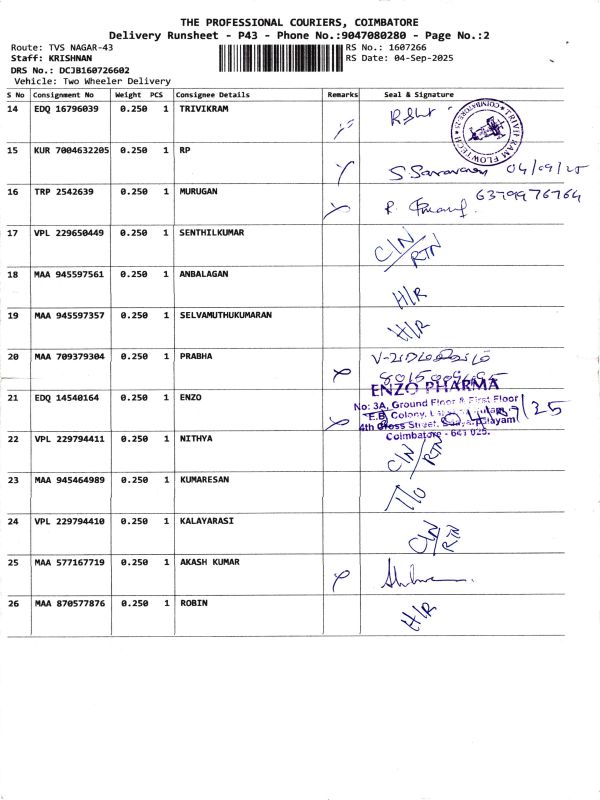 THE PROFESSIONAL COURIERS, COIMBATORE
Delivery Runsheet - P43 - Phone No.:9047080280 - Page No.:2
Route: TVS NAGAR-43 RS No.: 1607266
Staff: KRISHNAN RS Date: 04-Sep-2025
DRS No.: DCJB160726602
Vehicle: Two Wheeler Delivery
S No Consignment No Weight PCS Consignee Details Remarks Seal & Signature
14 EDQ 16796039 0.250 1 TRIVIKRAM
TRIVIKRAM FLOWTECH COIMBATORE-25
15 KUR 7004632205 0.250 1 RP
S. Saravanan 04/09/25
16 TRP 2542639 0.250 1 MURUGAN
6379976764
17 VPL 229650449 0.250 1 SENTHILKUMAR C/N RTN
18 MAA 945597561 0.250 1 ANBALAGAN H/R
19 MAA 945597357 0.250 1 SELVAMUTHUKUMARAN H/R
20 MAA 709379304 0.250 1 PRABHA
ENZO PHARMA
21 EDQ 14540164 0.250 1 ENZO
No: 3A, Ground Floor & First Floor
E.B. Colony,
4th Cross Street,
Coimbatore - 641 025.
22 VPL 229794411 0.250 1 NITHYA C/N RTN
23 MAA 945464989 0.250 1 KUMARESAN
24 VPL 229794410 0.250 1 KALAYARASI C/N RTN
25 MAA 577167719 0.250 1 AKASH KUMAR
26 MAA 870577876 0.250 1 ROBIN H/R